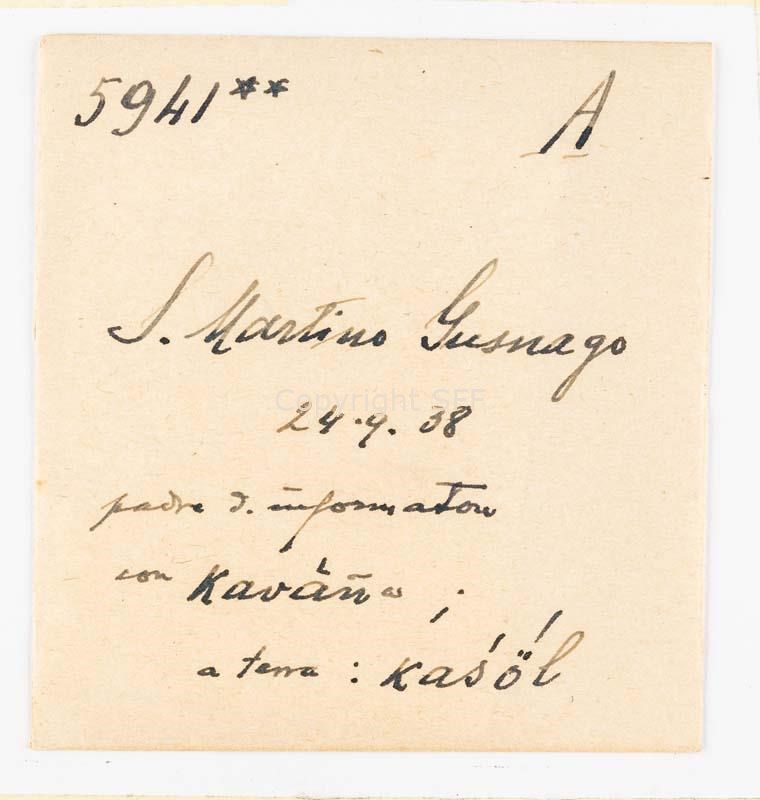 5941** A
S. Martino Gusnago
Copyright SEF
24.9.38
padre d. informatore
con kaváña ;
a terra : kaśö́l